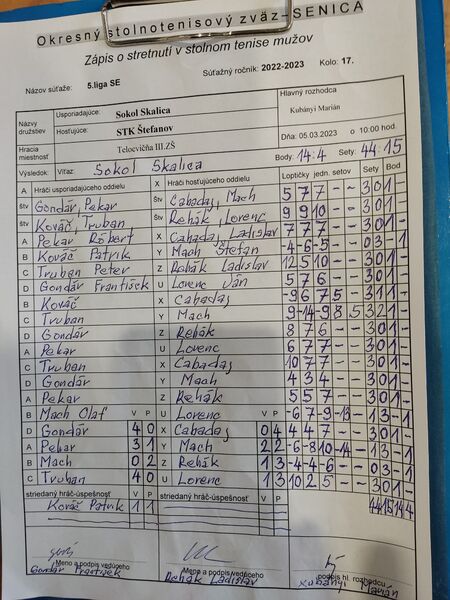 Okresný stolnotenisový zväz-SENICA
Zápis o stretnutí v stolnom tenise mužov
Názov súťaže: 5.liga SE Súťažný ročník: 2022-2023 Kolo: 17.
Názvy družstiev Usporiadajúce: Sokol Skalica Hlavný rozhodca
Hosťujúce: STK Štefanov Kubányi Marián
Hracia miestnosť Telocvičňa III.ZŠ Dňa: 05.03.2023 o 10:00 hod.
Výsledok: Víťaz: Sokol Skalica Body: 14:4 Sety: 44:15
A Hráči usporiadajúceho oddielu X Hráči hosťujúceho oddielu Loptičky jedn. setov Sety Bod
Štv Gondár, Pekar Štv Cabadaj, Mach 5 7 7 - - 3 0 1 -
Štv Kováč, Truban Štv Rehák, Lorenc 9 9 10 - - 3 0 1 -
A Pekar Róbert X Cabadaj Ladislav 7 7 7 - - 3 0 1 -
B Kováč Patrik Y Mach Štefan -4 -6 -5 - - 0 3 - 1
C Truban Peter Z Rehák Ladislav 12 5 10 - - 3 0 1 -
D Gondár František U Lorenc Ján 5 7 6 - - 3 0 1 -
B Kováč X Cabadaj -9 6 7 5 - 3 1 1 -
C Truban Y Mach 9 -14 -9 8 5 3 2 1 -
D Gondár Z Rehák 8 7 6 - - 3 0 1 -
A Pekar U Lorenc 6 7 7 - - 3 0 1 -
C Truban X Cabadaj 10 7 7 - - 3 0 1 -
D Gondár Y Mach 4 3 4 - - 3 0 1 -
A Pekar Z Rehák 5 5 7 - - 3 0 1 -
B Mach Olaf V P U Lorenc V P -6 7 -9 -13 - 1 3 - 1
D Gondár 4 0 X Cabadaj 0 4 4 4 7 - - 3 0 1 -
A Pekar 3 1 Y Mach 2 2 -6 -8 10 -14 - 1 3 - 1
B Mach 0 2 Z Rehák 1 3 -4 -4 -6 - - 0 3 - 1
C Truban 4 0 U Lorenc 1 3 10 2 5 - - 3 0 1 -
striedaný hráč-úspešnosť V P striedaný hráč-úspešnosť V P 44 15 14 4
Kováč Patrik 1 1
Meno a podpis vedúceho Meno a podpis vedúceho podpis hl. rozhodcu
Gondár František Rehák Ladislav Kubányi Marián